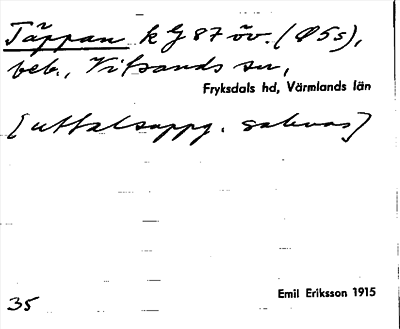 Täppan kG 87 öv. (Ø5s),
beb., Vitsands sn,
Fryksdals hd, Värmlands län
[uttalsuppg. saknas]
Emil Eriksson 1915
35